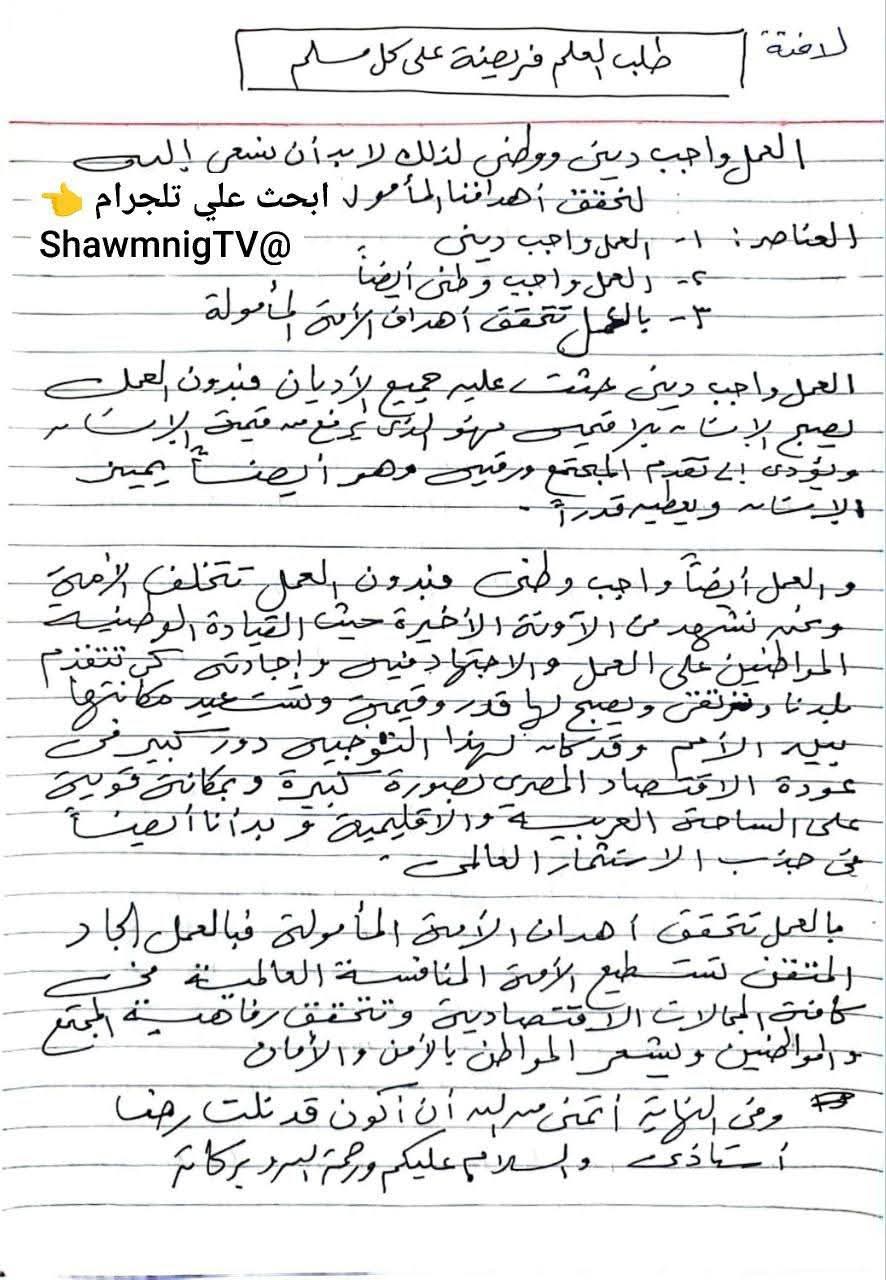 لافتة
طلب العلم فريضة على كل مسلم
العمل واجب ديني ووطني لذلك لابد أن نسعى إليه
لنحقق أهدافنا المأمول ابحث علي تلجرام 👈
ShawmnigTV@
العناصر: ١- العمل واجب ديني
٢- العمل واجب وطني أيضاً
٣- بالعمل تتحقق أهداف الأمة المأمولة
العمل واجب ديني حثت عليه جميع الأديان فبدون العمل
يصبح الإنسان بلا قيمة فهو الذي يرفع من قيمة الإنسان
ويؤدي إلى تقدم المجتمع ورقيه وهو أيضاً يميز
الإنسان ويعطيه قدراً.
والعمل أيضاً واجب وطني فبدون العمل تتخلف الأمة
ونحن نشهد من الآونة الأخيرة حيث القيادة الوطنية
المواطنين على العمل والاجتهاد فيه وإجادته كي تتقدم
بلدنا وترتقي ويصبح لها قدر وقيمة وتستعيد مكانتها
بين الأمم وقد كان لهذا التوجيه دور كبير في
عودة الاقتصاد المصري بصورة كبيرة وبمكانة قوية
على الساحة العربية والاقليمية وبدأنا أيضاً
في جذب الاستثمار العالمي.
بالعمل تتحقق أهداف الأمة المأمولة فبالعمل الجاد
المتقن تستطيع الأمة المنافسة العالمية في
كافة المجالات الاقتصادية وتتحقق رفاهية المجتمع
والمواطنين ويشعر المواطن بالأمن والأمان
وفي النهاية أتمنى من الله أن أكون قد نلت رضا
أستاذي والسلام عليكم ورحمة الله وبركاته